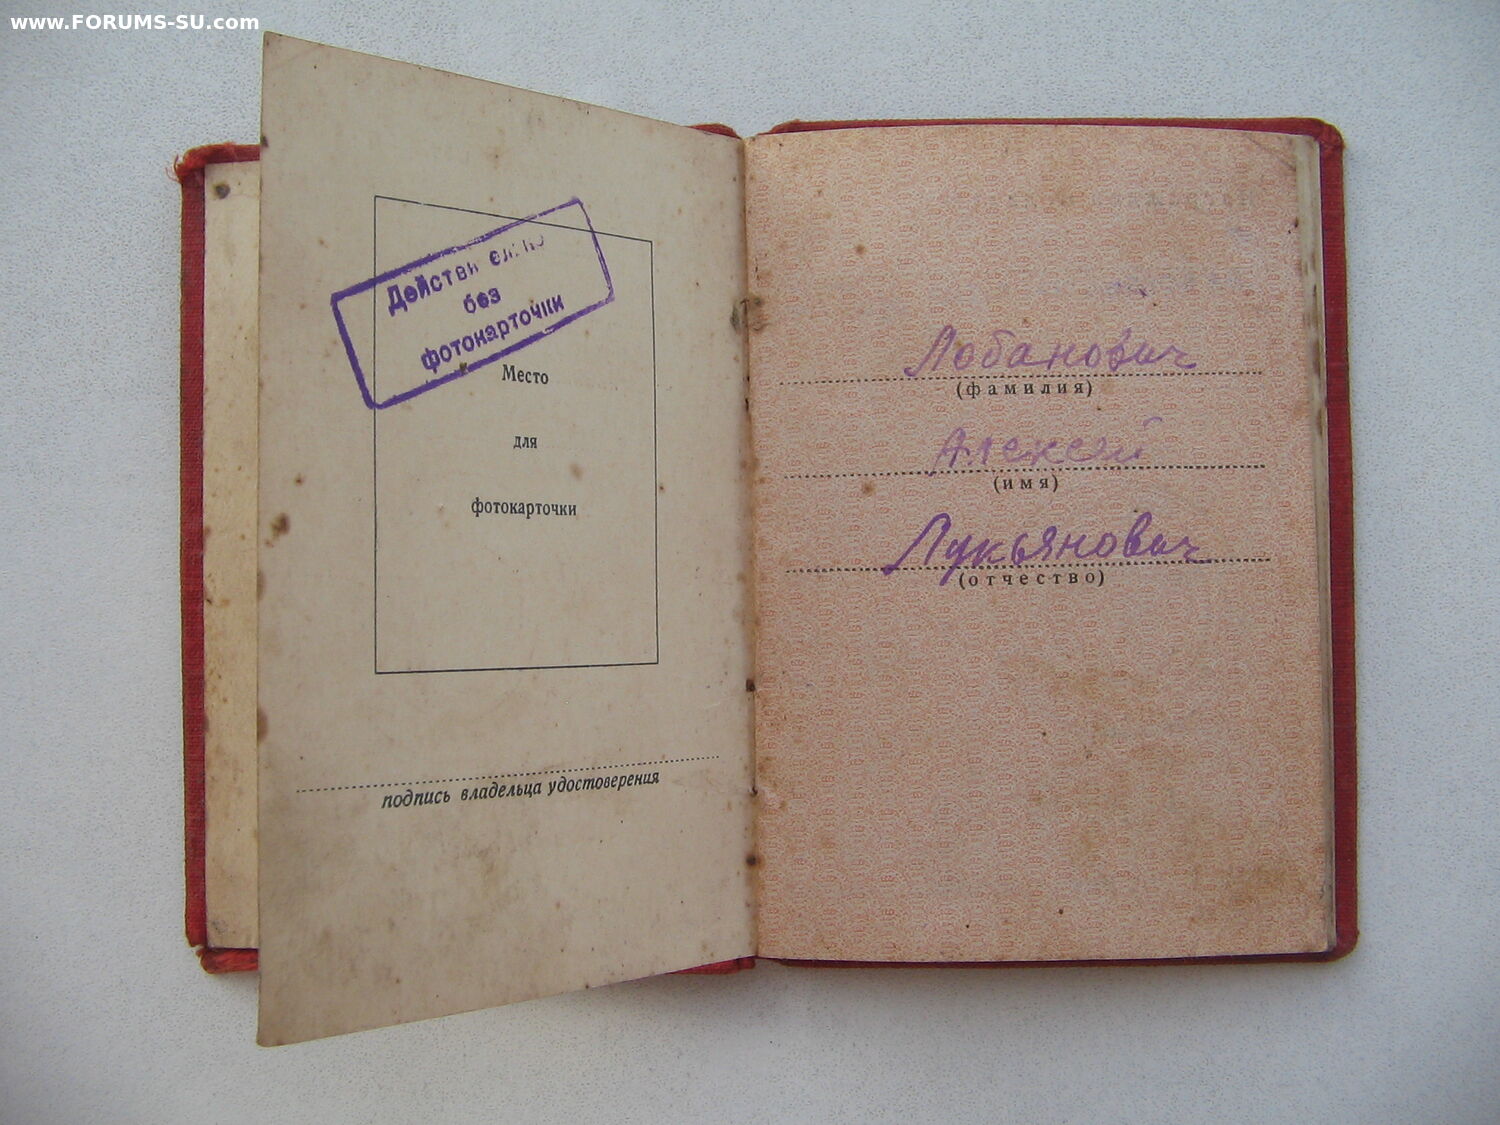 www.FORUMS-SU.com
Действительно
без
фотокарточки
Место
для
фотокарточки
подпись владельца удостоверения
Лобанович
(фамилия)
Алексей
(имя)
Лукьянович
(отчество)